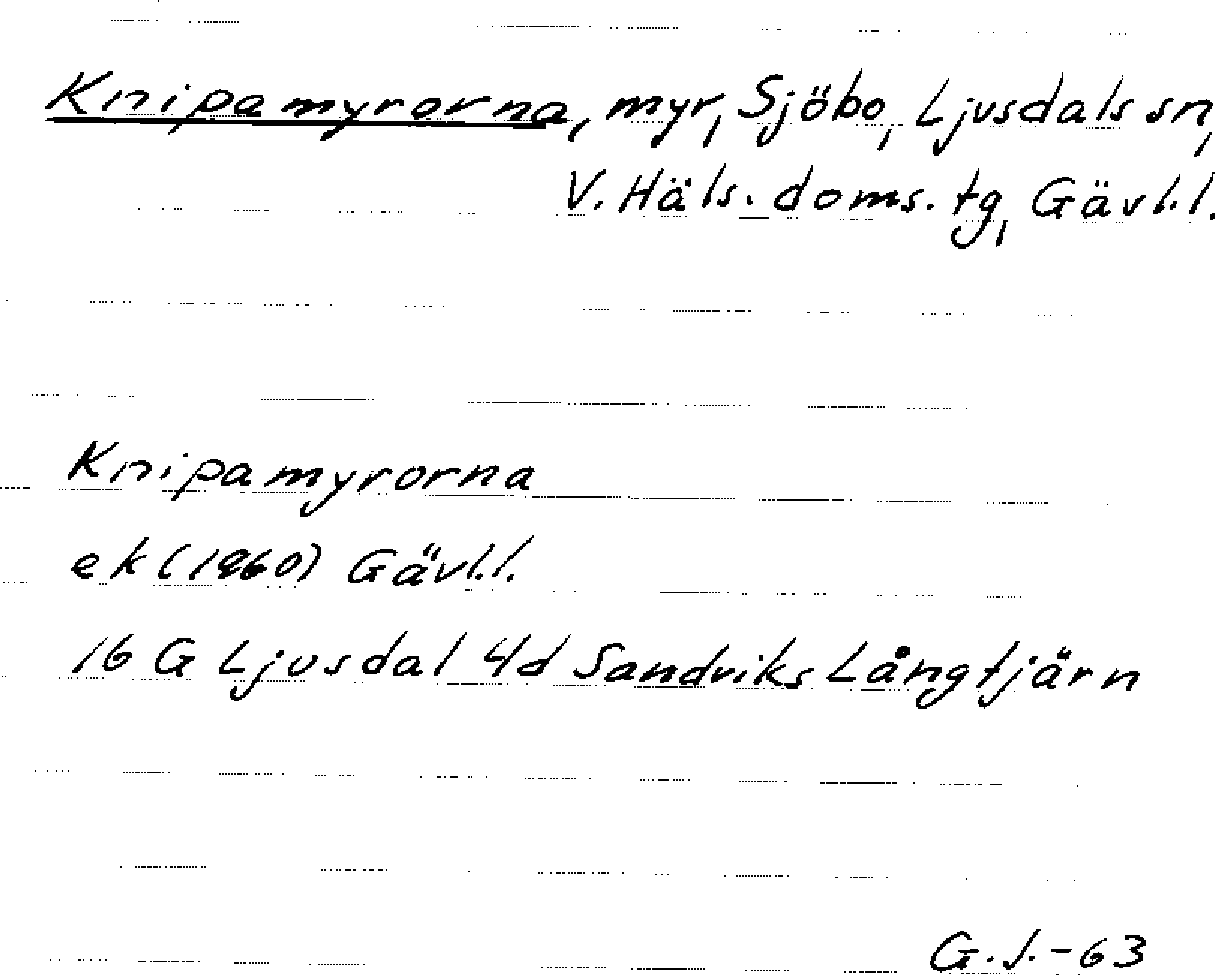 Knipamyrorna, myr, Sjöbo, Ljusdals sn,
V. Häls. doms. tg, Gävl.l.
Knipamyrorna
ek (1960) Gävl.l.
16 G Ljusdal 4d Sandviks Långtjärn
G.J.-63